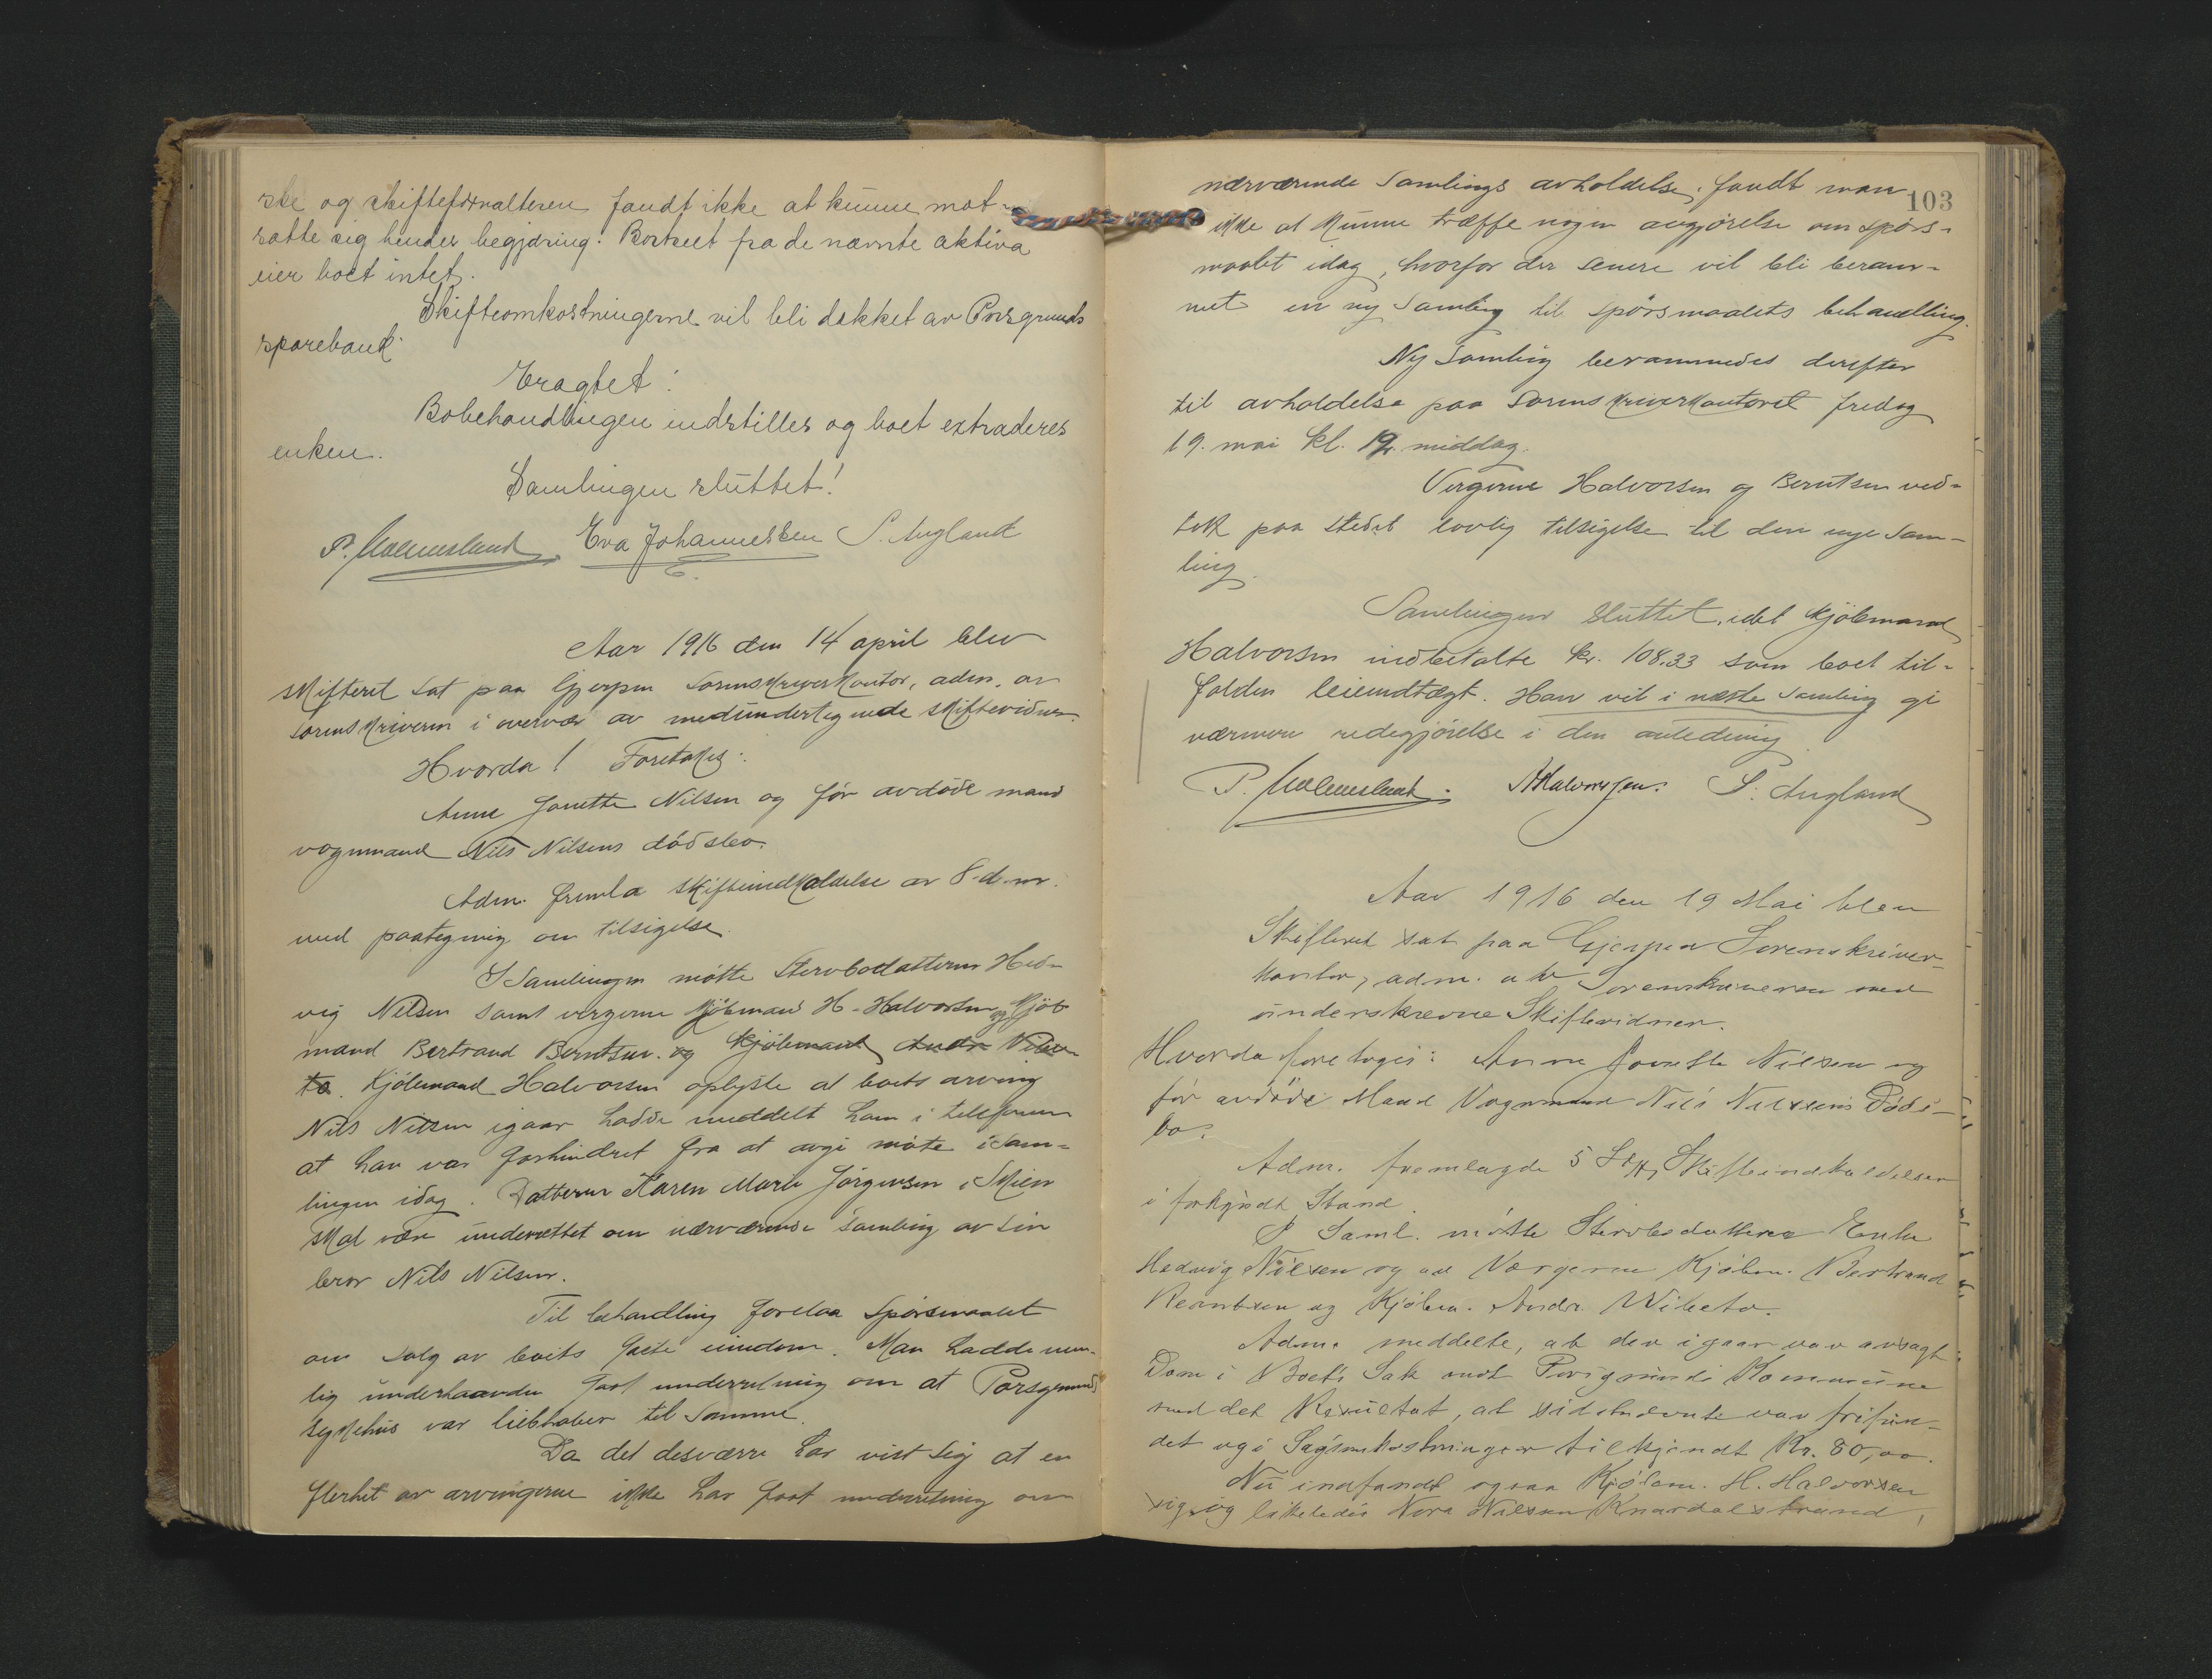 ske og skifteforvalteren fandt ikke at kunne mot-
sætte sig hendes begjæring. Bortset fra de nævnte aktiva
eier boet intet.
Skifteomkostningerne vil bli dækket av Porsgrunds
sparebank.
Eragtet:
Bobehandlingen indstilles og boet extraderes
enken.
Samlingen sluttet!
P. Holmesland Eva Johannessen S. Augland
Aar 1916 den 14 april blev
skifteret sat paa Gjerpen sorenskriverkontor, adm. av
sorenskriveren i overvær av medundertegnede skiftevidner.
Hvorda! Foretokes:
Anne Jonette Nilsen og før avdøde mand
vognmand Nils Nilsens dødsbo.
Adm. fremla skifteindkaldelse av 8. d. m.
med paategning om tilsigelse.
I Samlingen møtte Stervbodatteren Hed-
vig Nilsen samt vergerne kjøbmand H. Halvorsen og Kjøb
mand Bertrand Berntsen. og Kjøbmand Andr. Vibe
to. Kjøbmand Halvorsen oplyste at boets arving
Nils Nilsen igaar hadde meddelt ham i telefonen
at han var forhindret fra at avgi møte i sam-
lingen idag. Datteren Karen Marie Jørgensen, Skien
skal være underrettet om nærværende samling av sin
bror Nils Nilsen.
Til behandling forelaa Spørsmaalet
om salg av boets faste eiendom. Man hadde nem-
lig underhaanden faat underretning om at Porsgrunds
sykehus var liebhaber til samme.
Da det desværre har vist sig at en
flerhet av arvingerne ikke har faat underretning om
103
nærværende Samlings avholdelse, fandt man
ikke at kunne træffe nogen avgjørelse om spørs-
maalet idag, hvorfor der senere vil bli beram-
met en ny Samling til spørsmaalets behandling.
Ny Samling berammedes derefter
til avholdelse paa Sorenskriverkontoret fredag
19. mai kl. 12 middag.
Vergerne Halvorsen og Berntsen ved-
tok paa stedet lovlig tilsigelse til den nye Sam-
ling.
Samlingen sluttet, idet Kjøbmand
Halvorsen indbetalte kr. 108.33 som boet til-
falden leieindtægt. Han vil i næste Samling gi
nærmere redegjørelse i den anledning.
P. Holmesland. H Halvorsen. S. Augland
Aar 1916 den 19 Mai blev
Skifteret sat paa Gjerpen Sorenskriver-
kontor, adm. av Sorenskriveren med
underskrevne Skiftevidner.
Hvorda foretoges: Anne Jonette Nilsen og
før avdøde Mand Vognmand Nils Nilsens Døds-
bo.
Adm. fremlagde 5 Stk Skifteindkaldelser
i forkyndt Stand.
I Saml. møtte Stervbodatteren Enke
Hedvig Nilsen og av Vergerne Kjøbm. Bertrand
Berntsen og Kjøbm. Andr. Wibeto.
Adm. meddelte, at der igaar var avsagt
Dom i Boets Sak mot Porsgrunds Kommune
med det Resultat, at sidstnævnte var frifun-
det og i Sagsomkostninger tilkjendt Kr. 80,00.
Nu indfandt ogsaa Kjøbm. H. Halvorsen
sig og likeledes Nora Nilsen Knardalstrand,